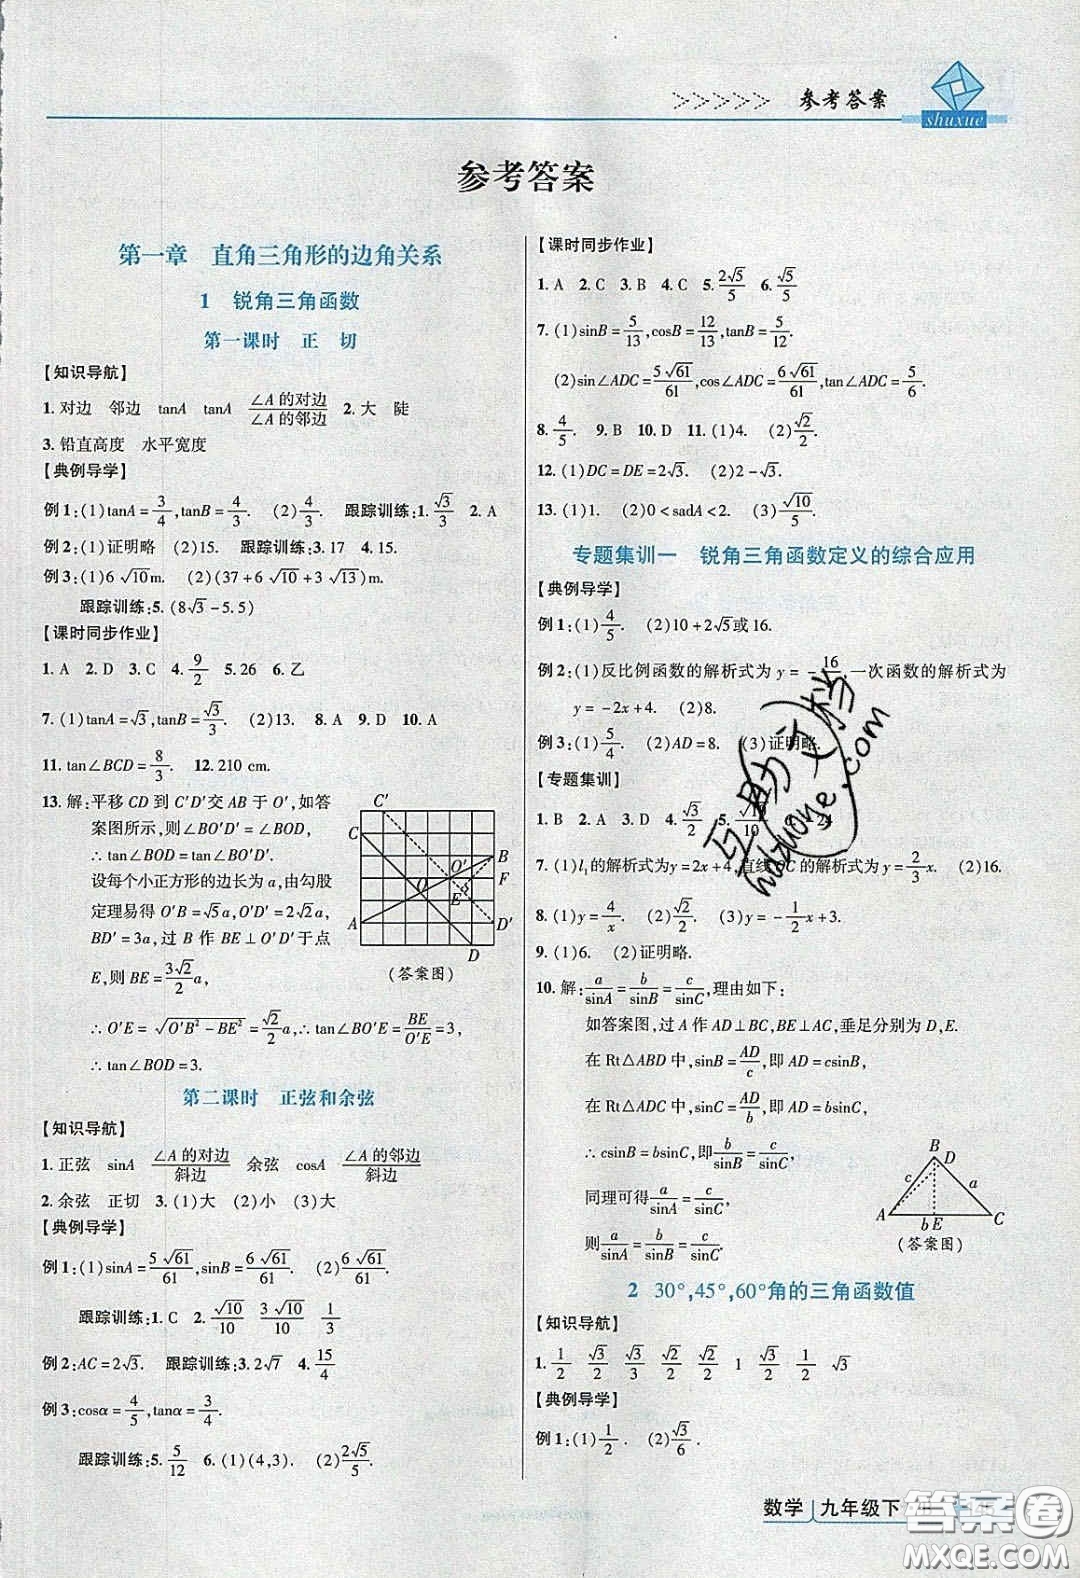 >>>>> 参考答案
shuxue
参考答案
第一章 直角三角形的边角关系
1 锐角三角函数
第一课时 正 切
【知识导航】
1. 对边 邻边 tanA tanA ∠A的对边/∠A的邻边 2. 大 陡
3. 铅直高度 水平宽度
【典例导学】
例1:(1)tanA=3/4,tanB=4/3. (2)4/3. 跟踪训练:1. √3/3 2. A
例2:(1)证明略 (2)15. 跟踪训练:3. 17 4. 15.
例3:(1)6√10m. (2)(37+6√10+3√13)m.
跟踪训练:5. (8√3-5.5)
【课时同步作业】
1. A 2. D 3. C 4. 9/2 5. 26 6. 乙
7. (1)tanA=√3,tanB=√3/3. (2)13. 8. A 9. D 10. A
11. tan∠BCD=8/3. 12. 210 cm.
13. 解:平移CD到C′D′交AB于O′,如答
案图所示,则∠BO′D′=∠BOD,
∴tan∠BOD=tan∠BO′D′.
设每个小正方形的边长为a,由勾股
定理易得O′B=√5a,O′D′=2√2a,
BD′=3a,过B作BE⊥O′D′于点
E,则BE=3√2/2 a,
∴O′E=√(O′B²-BE²)=√2/2 a,∴tan∠BO′E=BE/O′E=3,
∴tan∠BOD=3.
C′
C
O′
B
O
F
E
A
D′
D
(答案图)
第二课时 正弦和余弦
【知识导航】
1. 正弦 sinA ∠A的对边/斜边 余弦 cosA ∠A的邻边/斜边
2. 余弦 正切 3. (1)大 (2)小 (3)大
【典例导学】
例1:(1)sinA=5√61/61,sinB=6√61/61. (2)6√61/61.
跟踪训练:1. C 2. √10/10 3√10/10 1/3
例2:AC=2√3. 跟踪训练:3. 2√7 4. 15/4
例3:cosα=4/5,tanα=3/4.
跟踪训练:5. 5/12 6. (1)(4,3). (2)2√5/5.
【课时同步作业】
1. A 2. C 3. B 4. C 5. 2√5/5 6. √5/5
7. (1)sinB=5/13,cosB=12/13,tanB=5/12.
(2)sin∠ADC=5√61/61,cos∠ADC=6√61/61,tan∠ADC=5/6.
8. 4/5. 9. B 10. D 11. (1)4. (2)√2/2.
12. (1)DC=DE=2√3. (2)2-√3.
13. (1)1. (2)0<sadA<2. (3)√10/5.
专题集训一 锐角三角函数定义的综合应用
【典例导学】
例1:(1)4/5. (2)10+2√5或16.
例2:(1)反比例函数的解析式为y=-16/ 一次函数的解析式为
y=-2x+4. (2)8.
例3:(1)5/4. (2)AD=8. (3)证明略.
【专题集训】
1. B 2. A 3. D 4. √3/2 5. √10/10 6. 24
7. (1)l₁的解析式为y=2x+4,直线 C的解析式为y=2/3 x. (2)16.
8. (1)y=4/x. (2)√2/2. (3)y=-1/2 x+3.
9. (1)6. (2)证明略.
10. 解:a/sinA=b/sinB=c/sinC,理由如下:
如答案图,过A作AD⊥BC,BE⊥AC,垂足分别为D,E.
在Rt△ABD中,sinB=AD/c,即AD=csinB,
在Rt△ADC中,sinC=AD/b,即AD=bsinC,
∴csinB=bsinC,即b/sinB=c/sinC,
同理可得a/sinA=c/sinC,
则a/sinA=b/sinB=c/sinC.
B
D
c
a
A
b
E
C
(答案图)
2 30°,45°,60°角的三角函数值
【知识导航】
1. 1/2 √3/2 √3/3 √2/2 √2/2 1 √3/2 1/2 √3
【典例导学】
例1:(1)1/2. (2)√3/6.
互助文档
huzuoye.com
数学 九年级下
答案圈
MXQE.COM